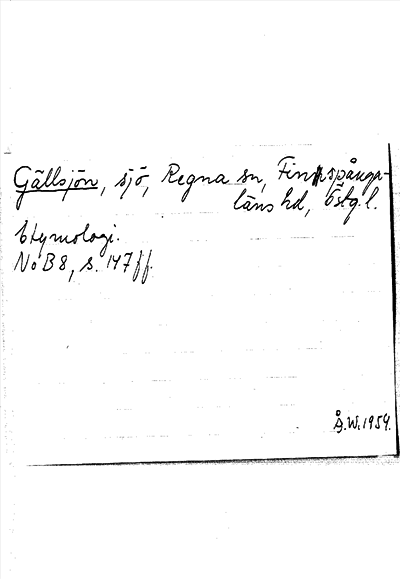 Gällsjön, sjö, Regna sn, Finspånga-
läns hd, Östg.l.
Etymologi.
NoB 8, s. 147 ff.
Å.W. 1954.